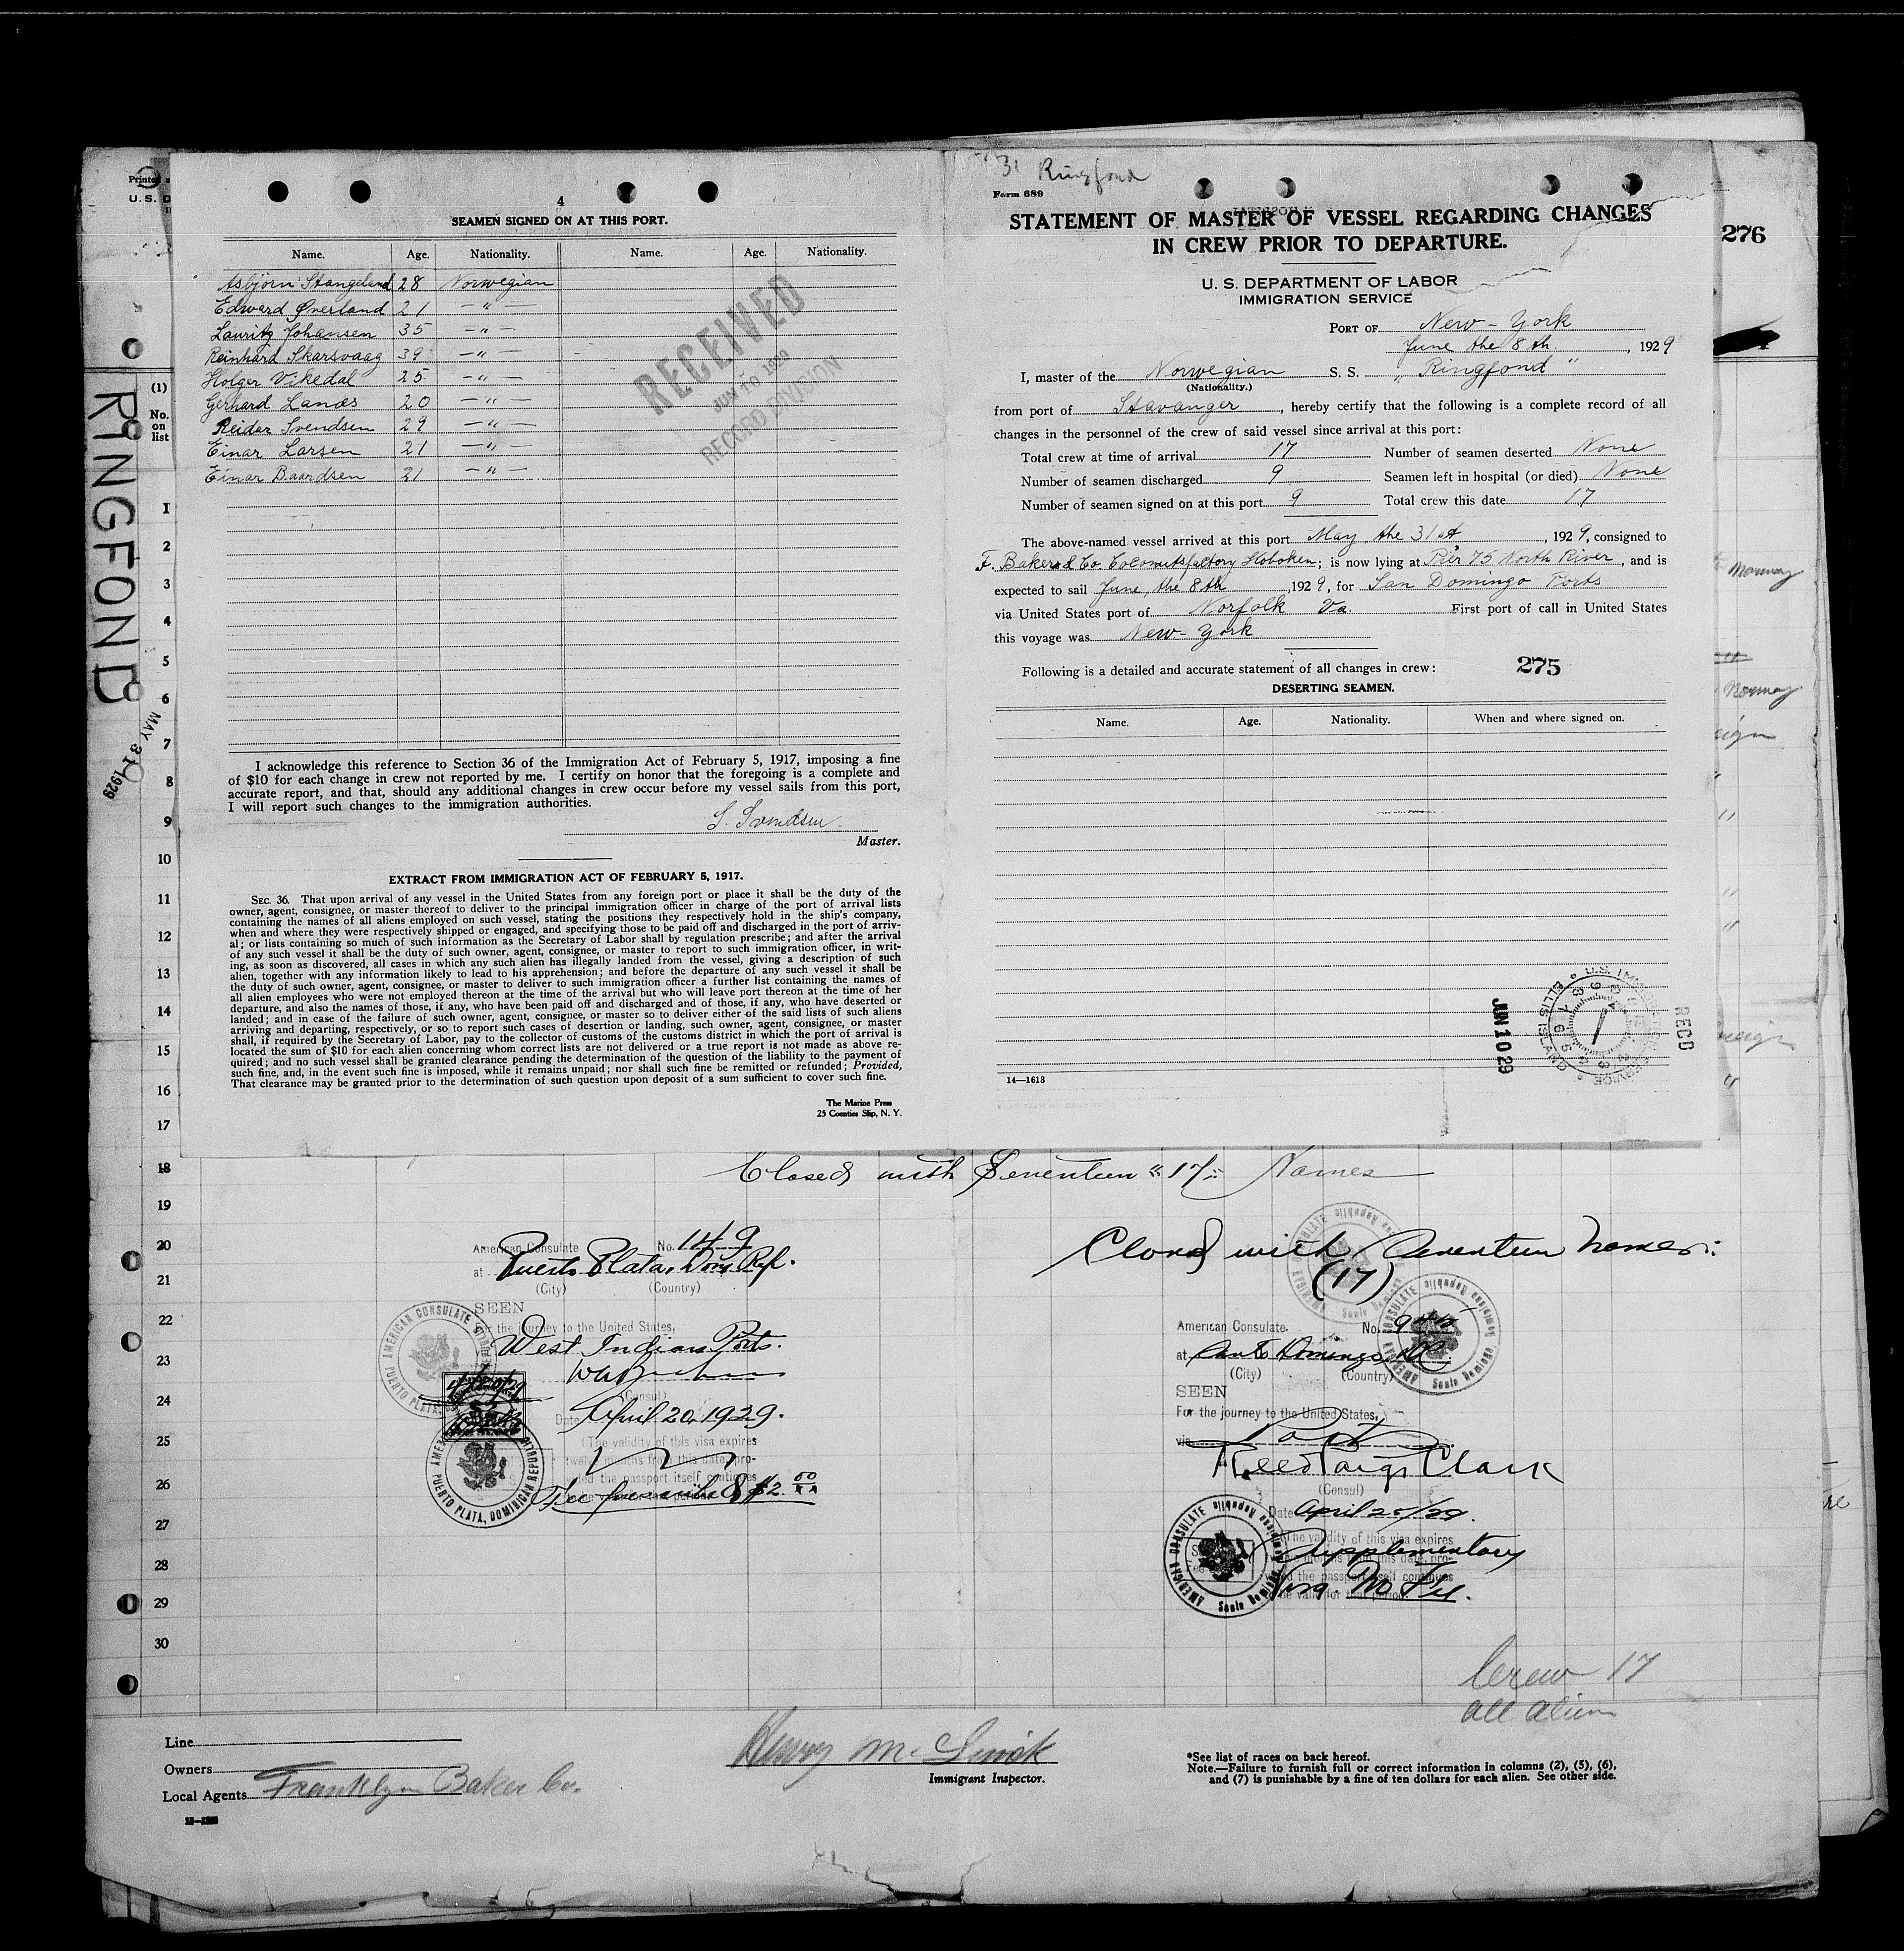 4
SEAMEN SIGNED ON AT THIS PORT.
Name. Age. Nationality. Name. Age. Nationality.
Asbjørn Stangeland 28 Norwegian
Edward Øverland 21 — " —
Lauritz Johansen 35 — " —
Reinhard Skarsvaag 39 — " —
Holger Vikedal 25 — " —
Gerhard Lanæs 20 — " —
Reidar Svendsen 29 — " —
Einar Larsen 21 — " —
Einar Baardsen 21 — " —
RECEIVED
JUN 10 1929
RECORD DIVISION
I acknowledge this reference to Section 36 of the Immigration Act of February 5, 1917, imposing a fine
of $10 for each change in crew not reported by me. I certify on honor that the foregoing is a complete and
accurate report, and that, should any additional changes in crew occur before my vessel sails from this port,
I will report such changes to the immigration authorities.
S. Svendsen
Master.
EXTRACT FROM IMMIGRATION ACT OF FEBRUARY 5, 1917.
SEC. 36. That upon arrival of any vessel in the United States from any foreign port or place it shall be the duty of the
owner, agent, consignee, or master thereof to deliver to the principal immigration officer in charge of the port of arrival lists
containing the names of all aliens employed on such vessel, stating the positions they respectively hold in the ship's company,
when and where they were respectively shipped or engaged, and specifying those to be paid off and discharged in the port of arriv-
al; or lists containing so much of such information as the Secretary of Labor shall by regulation prescribe; and after the arrival
of any such vessel it shall be the duty of such owner, agent, consignee, or master to report to such immigration officer, in writ-
ing, as soon as discovered, all cases in which any such alien has illegally landed from the vessel, giving a description of such
alien, together with any information likely to lead to his apprehension; and before the departure of any such vessel it shall be
the duty of such owner, agent, consignee, or master to deliver to such immigration officer a further list containing the names of
all alien employees who were not employed thereon at the time of the arrival but who will leave port thereon at the time of her
departure, and also the names of those, if any, who have been paid off and discharged and of those, if any, who have deserted or
landed; and in case of the failure of such owner, agent, consignee, or master so to deliver either of the said lists of such aliens
arriving and departing, respectively, or so to report such cases of desertion or landing, such owner, agent, consignee, or master
shall, if required by the Secretary of Labor, pay to the collector of customs of the customs district in which the port of arrival is
located the sum of $10 for each alien concerning whom correct lists are not delivered or a true report is not made as above re-
quired; and no such vessel shall be granted clearance pending the determination of the question of the liability to the payment of
such fine, and, in the event such fine is imposed, while it remains unpaid; nor shall such fine be remitted or refunded; Provided,
That clearance may be granted prior to the determination of such question upon deposit of a sum sufficient to cover such fine.
The Marine Press
25 Coenties Slip, N. Y.
31 Ringfond
Form 689
STATEMENT OF MASTER OF VESSEL REGARDING CHANGES
IN CREW PRIOR TO DEPARTURE.
U. S. DEPARTMENT OF LABOR
IMMIGRATION SERVICE
PORT OF New-York
June the 8th, 1929
I, master of the Norwegian S. S. "Ringfond"
(Nationality.)
from port of Stavanger, hereby certify that the following is a complete record of all
changes in the personnel of the crew of said vessel since arrival at this port:
Total crew at time of arrival 17 Number of seamen deserted None
Number of seamen discharged 9 Seamen left in hospital (or died) None
Number of seamen signed on at this port 9 Total crew this date 17
The above-named vessel arrived at this port May the 31st, 1929, consigned to
F. Baker & Co. Coconutsfactory Hoboken; is now lying at Pier 75 North River, and is
expected to sail June, the 8th, 1929, for San Domingo Ports
via United States port of Norfolk Va. First port of call in United States
this voyage was New-York
Following is a detailed and accurate statement of all changes in crew: 275
DESERTING SEAMEN.
Name. Age. Nationality. When and where signed on.
14—1613
JUN 10 29
U.S. IMMIGRATION SERVICE
ELLIS ISLAND
RECD
276
Norway
Norway
Printed
U. S. D
(1)
No.
on
list
RINGFOND
MAY 31 1929
1
2
3
4
5
6
7
8
9
10
11
12
13
14
15
16
17
18
19
20
21
22
23
24
25
26
27
28
29
30
Closed with Seventeen "17" Names
American Consulate No. 149
at Puerto Plata, Dom. Rep.
(City) (Country)
SEEN
For the journey to the United States,
West Indian Ports.
(Consul)
Date April 20, 1929.
(The validity of this visa expires
twelve months from this date, pro-
vided the passport itself continues
Fee prescribed $2.00
4/20/29
AMERICAN CONSULATE
PUERTO PLATA, DOMINICAN REPUBLIC
Closed with Seventeen names:
(17)
American Consulate. No.
at Santo Domingo, DR
(City) (Country)
SEEN
For the journey to the United States,
via Ports
Reed Paige Clark
(Consul)
Date April 25/29.
The validity of this visa expires
Supplementary
Visa. No Fee.
AMERICAN CONSULATE Santo Domingo Dominican Republic
Crew 17
all alien
Line
Owners
Local Agents Franklyn Baker Co.
Henry Mc
Immigrant Inspector.
*See list of races on back hereof.
Note.—Failure to furnish full or correct information in columns (2), (5), (6),
and (7) is punishable by a fine of ten dollars for each alien. See other side.